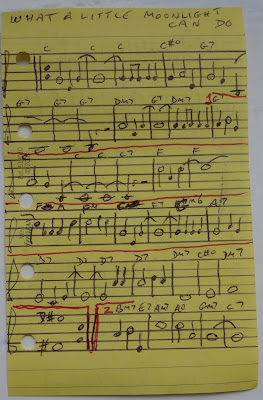 WHAT A LITTLE MOONLIGHT
CAN DO
C C C C#o G7
G7 G7 G7 DM7 G7 DM7 G7
C C C7 F F
E7 A7
D7 D7 D7 D7 DM7 C#o DM7
D#o 2 BM7 E7 AM7 A0 GM7 C7